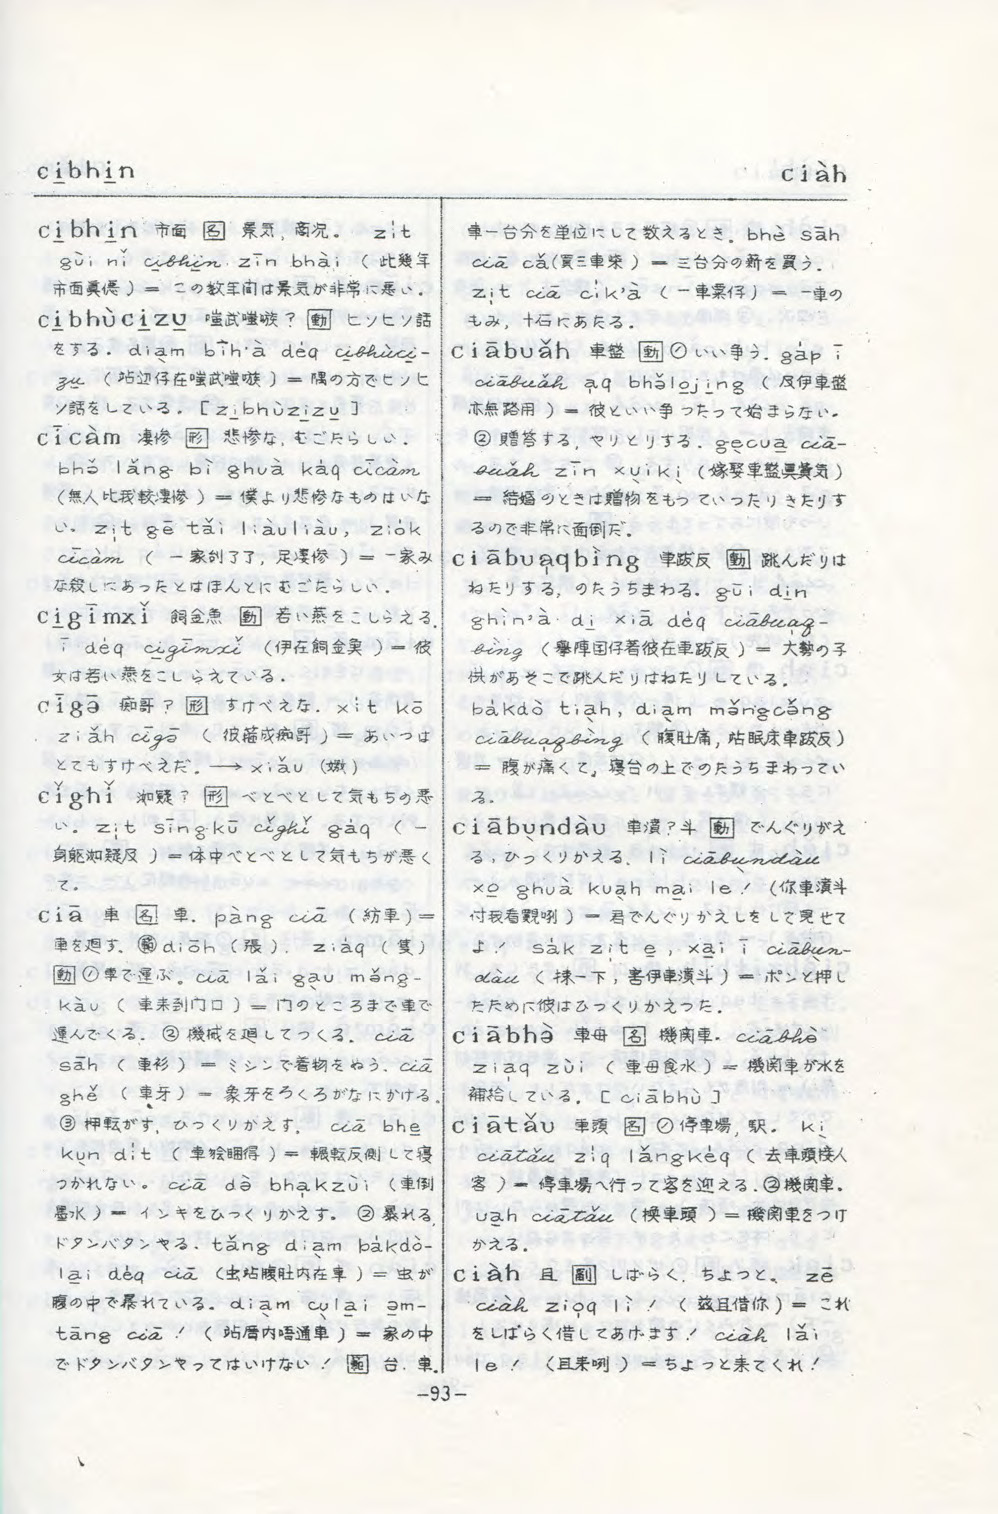 ci̲bhi̲n
ciàh
ci̲bhi̲n 市面 [名] 景気, 商況。 zi̍t
gùi nǐ ci̲bhi̲n zīn bhài (此幾年
市面眞僫) = この数年間は景気が非常に悪い.
ci̲bhùci̲zu̲ 嗤武嗤嗾? [動] ヒソヒソ話
をする. diạm bīh·à déq ci̲bhùci̲-
zu̲ (站辺仔在嗤武嗤嗾) = 隅の方でヒソヒ
ソ話をしている. [zi̲bhùzi̲zu̲]
cīcàm 凄惨 [形] 悲惨な, むごたらしい.
bhə̌ lǎng bì ghuà kàq cīcàm
(無人比我較凄惨) = 僕より悲惨なものはいな
い. zi̍t gē tǎi liàuliàu, ziȯk
cīcàm (一家刣了了, 足凄惨) = 一家み
な殺しにあったとはほんとにむごたらしい.
ci̲gīmxǐ 飼金魚 [動] 若い燕をこしらえる.
ī déq ci̲gīmxǐ (伊在飼金魚) = 彼
女は若い燕をこしらえている.
cīgə̄ 痴哥? [形] すけべえな. xi̍t kō
ziǎh cīgə̄ (彼箍成痴哥) = あいつは
とてもすけべえだ. → xiǎu (嬈)
cǐghǐ 洳疑? [形] べとべとして気もちの悪
い. zi̍t sīngkū cǐghǐ gàq (一
身躯洳疑及) = 体中べとべとして気もちが悪く
て.
ciā 車 [名] 車. pàng ciā (紡車)=
車を廻す. diōh (張). ziàq (隻)
[動] ①車で運ぶ. ciā lǎi gạu mǎng-
kàu (車来到门口) = 门のところまで車で
運んでくる. ②機械を廻してつくる. ciā
sāh (車衫) = ミシンで着物をぬう. ciā
ghě (車牙) = 象牙をろくろがなにかける.
③押転がす, ひっくりかえす. ciā bhe̲
kụn di̍t (車𣍐睏得) = 輾転反側して寝
つかれない. ciā də̀ bha̍kzùi (車倒
墨水) = インキをひっくりかえす. ②暴れる,
ドタンバタンやる. tǎng diạm bàkdò-
la̲i déq ciā (虫站腹肚内在車) = 虫が
腹の中で暴れている. diạm cụlai əm-
tāng ciā! (站厝内唔通車) = 家の中
でドタンバタンやってはいけない! 台. 車.
車一台分を単位にして数えるとき. bhè sāh
ciā cǎ (買三車柴) = 三台分の薪を買う.
zi̍t ciā cìk'à (一車粟仔) = 一車の
もみ, 十石にあたる.
ciābuǎh 車盤 [動] ①いい争う. gáp ī
ciābuǎh a̍q bhə̌lo̲ji̲ng (及伊車盤
亦無路用) = 彼といい争ったって始まらない.
②贈答する, やりとりする. gẹcua̲ ciā-
buǎh zīn xụikị (嫁娶車盤眞費気)
= 結婚のときは贈物をもっていったりきたりす
るので非常に面倒だ.
ciābua̍qbìng 車跋反 [動] 跳んだりは
ねたりする, のたうちまわる. gūi di̲n
ghìn'à di̲ xiā déq ciābua̍q-
bìng (擧陣囡仔着彼在車跋反) = 大勢の子
供があそこで跳んだりはねたりしている.
bàkdò tiạh, diạm mǎngcǎng
ciābua̍qbìng (腹肚痛, 站眠床車跋反)
= 腹が痛くて, 寝台の上でのたうちまわってい
る.
ciābụndàu 車濆?斗 [動] でんぐりがえ
る, ひっくりかえる. lì ciābụndàu
xo̲ ghuà kuạh ma̲i le! (你車濆斗
付我看覔咧) = 君でんぐりかえしをして見せて
よ! sàk zi̍t e̲, xa̲i ī ciābụn-
dàu (揀一下, 害伊車濆斗) = ポンと押し
たために彼はひっくりかえった.
ciābhə̀ 車母 [名] 機関車. ciābhə̀
zia̍q zùi (車母食水) = 機関車が水を
補給している. [ciābhù]
ciātǎu 車頭 [名] ①停車場, 駅. kị
ciātǎu zi̍q lǎngkèq (去車頭接人
客) = 停車場へ行って客を迎える. ②機関車.
ua̲h ciātǎu (換車頭) = 機関車をつけ
かえる.
ciàh 且 [副] しばらく, ちょっと. zē
ciàh ziọq lì! (茲且借你) = これ
をしばらく借してあげます! ciàh lǎi
le! (且来咧) = ちょっと来てくれ!
-93-